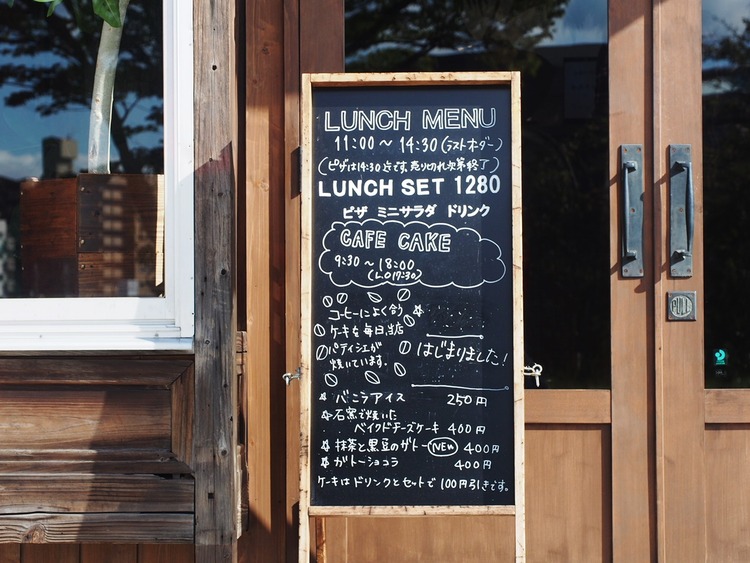 LUNCH MENU
11:00～14:30(ラストオーダー)
(ピザは14:30迄です。売り切れ次第終了)
LUNCH SET 1280
ピザ ミニサラダ ドリンク
CAFE CAKE
9:30～18:00
(L.O17:30)
コーヒーによく合う
ケーキを毎日当店
パティシエが
焼いています。
はじまりました!
☆バニラアイス 250円
☆石窯で焼いた
ベイクドチーズケーキ 400円
☆抹茶と黒豆のガトー NEW 400円
☆ガトーショコラ 400円
ケーキはドリンクとセットで100円引きです。
PULL